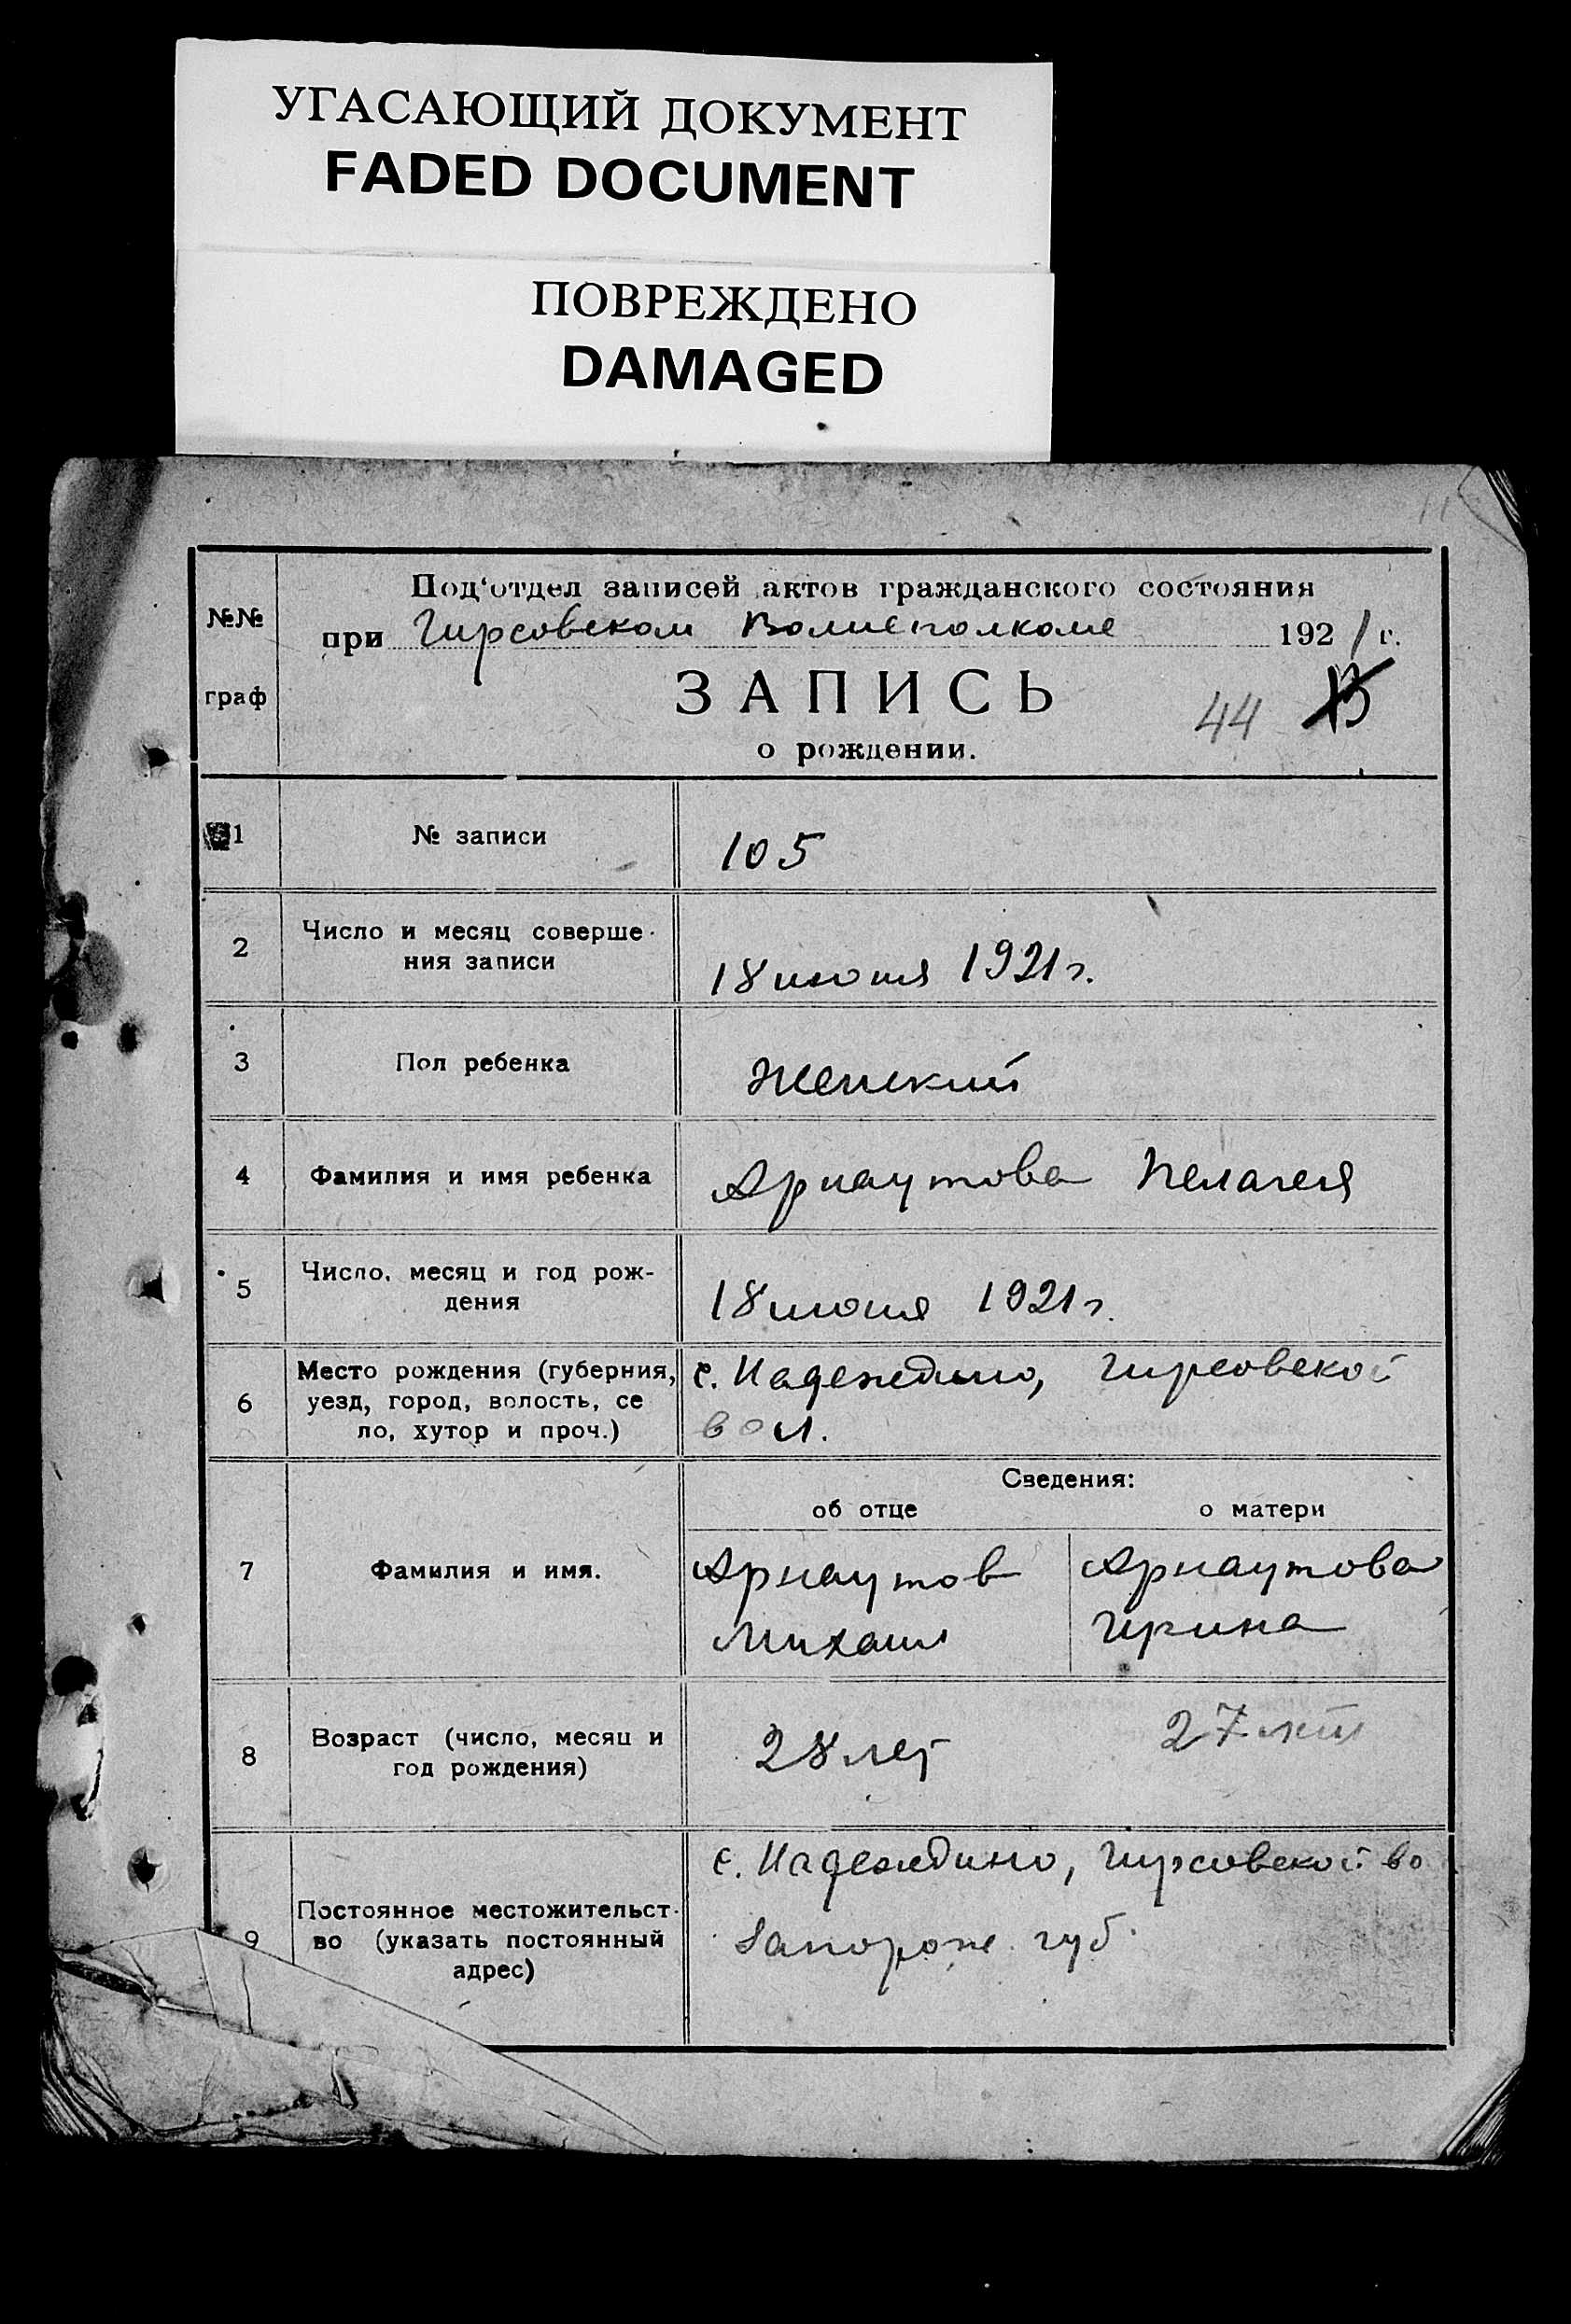 УГАСАЮЩИЙ ДОКУМЕНТ
FADED DOCUMENT
ПОВРЕЖДЕНО
DAMAGED
№№
граф
Под‘отдел записей актов гражданского состояния
при Гирсовском Волисполкоме 1921 г.
ЗАПИСЬ
44
о рождении.
1 № записи 105
2 Число и месяц соверше-
ния записи
18 июня 1921 г.
3 Пол ребенка Женский
4 Фамилия и имя ребенка Арнаутова Пелагея
5 Число, месяц и год рож-
дения
18 июня 1921 г.
6 Место рождения (губерния,
уезд, город, волость, се
ло, хутор и проч.)
с. Надеждино, Гирсовской
вол.
Сведения:
об отце о матери
7 Фамилия и имя.
Арнаутов Арнаутова
Михаил Ирина
8 Возраст (число, месяц и
год рождения)
28 лет 27 лет
9 Постоянное местожительст-
во (указать постоянный
адрес)
с. Надеждино, Гирсовской во
Запорож. губ.